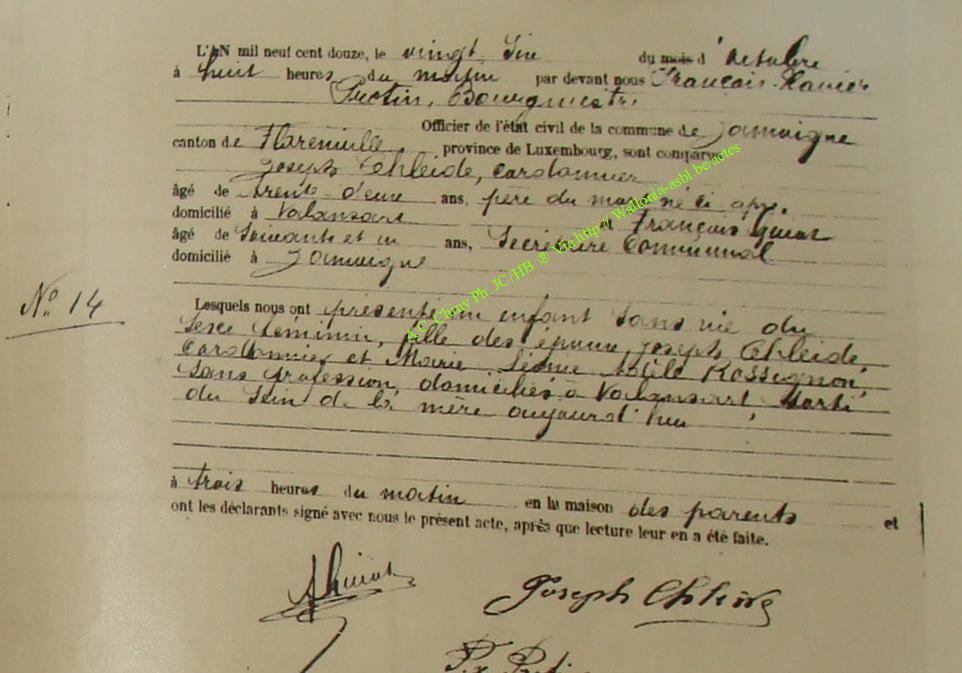 L'AN mil neuf cent douze, le vingt six du mois d'octobre
à huit heures du matin par devant nous François-Xavier
Protin, Bourgmestre
Officier de l'état civil de la commune de Jamoigne
canton de Florenville, province de Luxembourg, sont comparus
Joseph Chleide, cordonnier
âgé de trente deux ans, père du mort né ci après,
domicilié à Valansart et François
âgé de Soixante et un ans, Secrétaire Communal
domicilié à Jamoigne
No. 14
Lesquels nous ont présenté un enfant sans vie du
sexe féminin, fille des époux Joseph Chleide,
Cordonnier et Marie Léonie Rossignon,
sans profession, domiciliés à Valansart, sorti
du sein de la mère aujourd'hui
à trois heures du matin en la maison des parents et
ont les déclarants signé avec nous le présent acte, après que lecture leur en a été faite.
Joseph Chleide
A.C. Chiny Ph JC /HB @ Via http:// Wallonia-asbl.be/actes